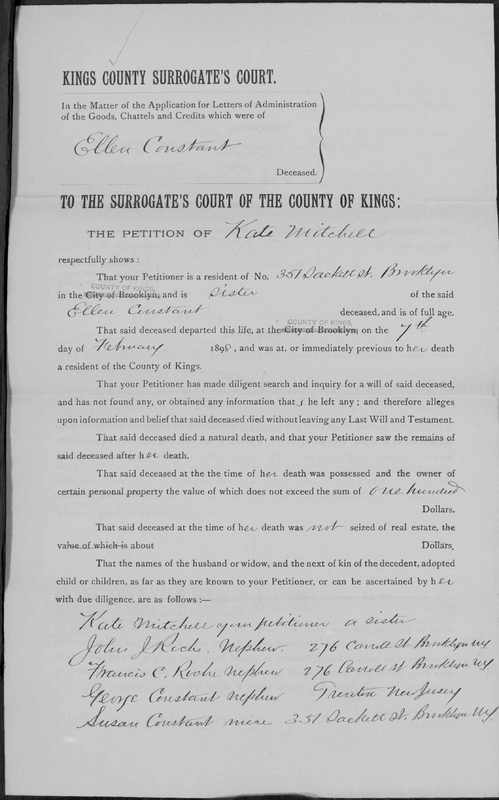 KINGS COUNTY SURROGATE'S COURT.
In the Matter of the Application for Letters of Administration
of the Goods, Chattels and Credits which were of
Ellen Constant
Deceased.
TO THE SURROGATE'S COURT OF THE COUNTY OF KINGS:
THE PETITION OF Kate Mitchell
respectfully shows:
That your Petitioner is a resident of No. 351 Sackett St. Brooklyn
COUNTY OF KINGS
in the City of Brooklyn, and is Sister of the said
Ellen Constant deceased, and is of full age.
COUNTY OF KINGS
That said deceased departed this life, at the City of Brooklyn, on the 7th
day of February 1898, and was at, or immediately previous to her death
a resident of the County of Kings.
That your Petitioner has made diligent search and inquiry for a will of said deceased,
and has not found any, or obtained any information that s he left any; and therefore alleges
upon information and belief that said deceased died without leaving any Last Will and Testament.
That said deceased died a natural death, and that your Petitioner saw the remains of
said deceased after her death.
That said deceased at the the time of her death was possessed and the owner of
certain personal property the value of which does not exceed the sum of one hundred
Dollars.
That said deceased at the time of her death was not seized of real estate, the
value of which is about Dollars.
That the names of the husband or widow, and the next of kin of the decedent, adopted
child or children, as far as they are known to your Petitioner, or can be ascertained by her
with due diligence, are as follows:—
Kate Mitchell your petitioner a sister
John J Roche. Nephew. 276 Carroll St Brooklyn NY
Francis C. Roche Nephew 276 Carroll St Brooklyn NY
George Constant Nephew Trenton New Jersey
Susan Constant niece 351 Sackett St. Brooklyn NY